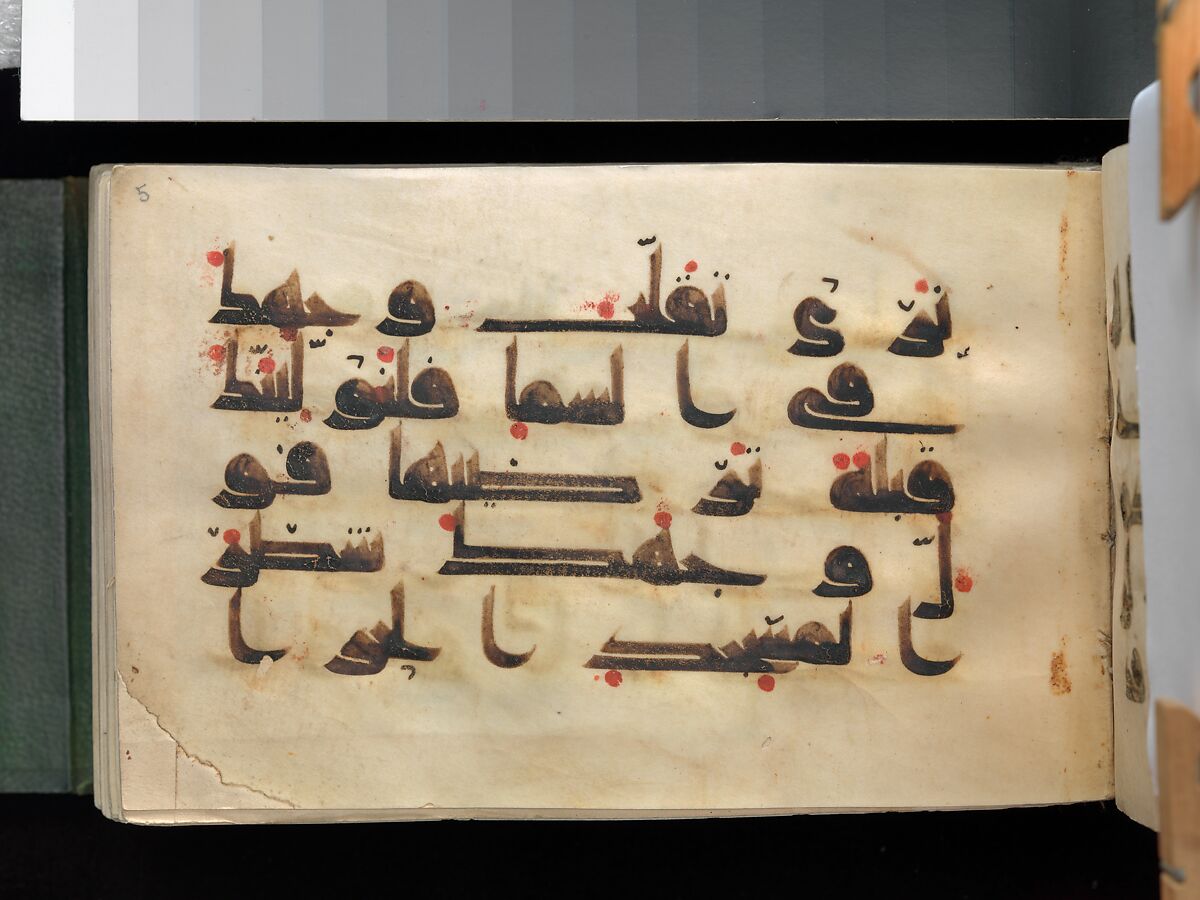 5
نرى تقلب وجهك
في السما فلنولينك
قبلة ترضيها فو
ل وجهك شطر
المسجد الحرا